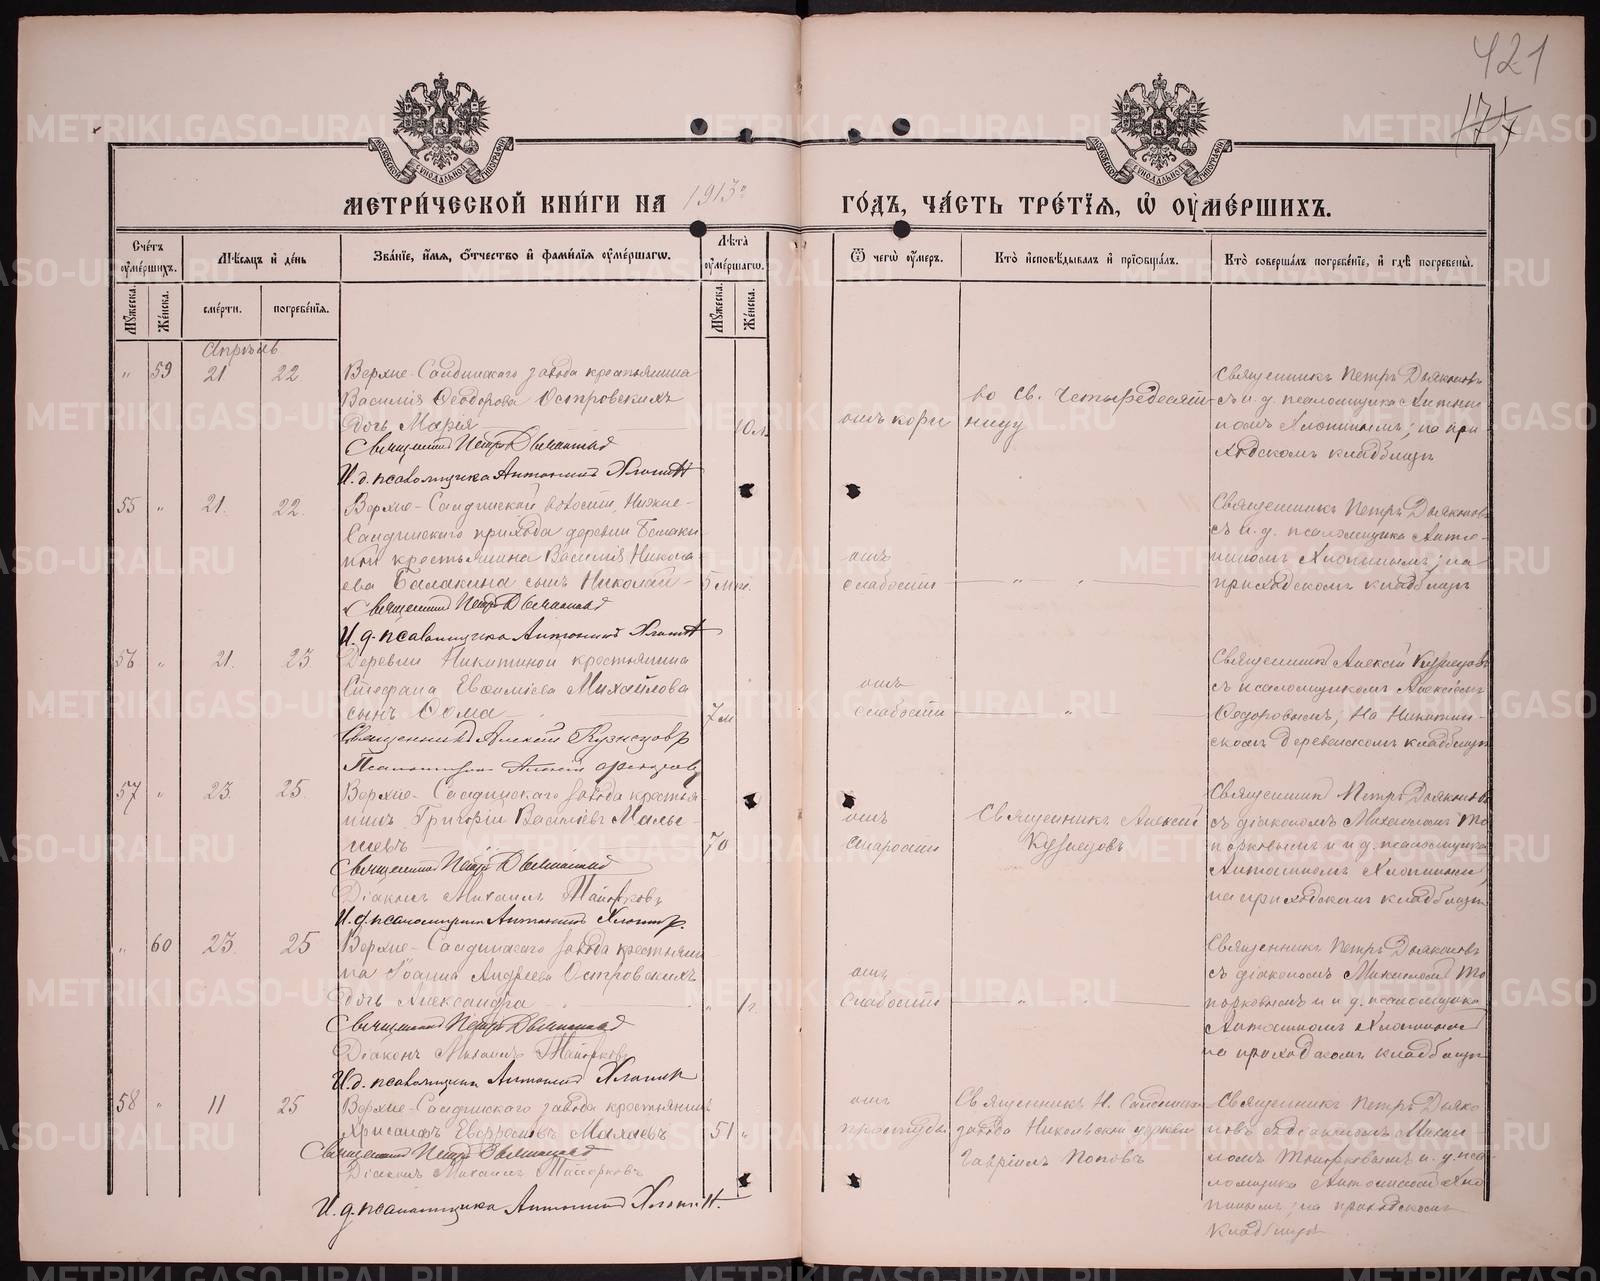 421
177
МЕТРИ́ЧЕСКОЙ КНИ́ГИ НА 1913 го́дъ, ча́сть тре́тїѧ, ѡ оу҆ме́ршихъ.
Сче́тъ оу҆ме́ршихъ.
Мѣ́сѧцъ и҆ де́нь
Зва́нїе, и҆́мѧ, ѻ҆́тчество и҆ фами́лїѧ оу҆ме́ршагѡ.
Лѣ́та оу҆ме́ршагѡ.
Ѿ чегѡ̀ оу҆́меръ.
Кто̀ и҆сповѣ́дывалъ и҆ прїѻбща́лъ.
Кто̀ соверша́лъ погребе́нїе, и҆ гдѣ̀ погребены̀.
Мꙋ́жеска.
Же́нска.
сме́рти.
погребе́нїѧ.
Мꙋ́жеска.
Же́нска.
Апрѣль
" 59 21 22
Верхне-Салдинскаго завода крестьянина
Василія Ѳеодорова Островскихъ
дочь Марія
Священникъ Петръ Дьяконов
И.д. псаломщика Антонинъ Хлопин
10 м.
отъ кори
во Св. Четыредесят-
ницу
Священникъ Петръ Дьяконовъ
съ и.д. псаломщика Антони-
номъ Хлопинымъ; на при
ходскомъ кладбищѣ
55 " 21. 22.
Верхне-Салдинской волости, Нижне-
Салдинскаго прихода деревни
крестьянина Василія Никола
ева Балакина сынъ Николай
Священникъ Петръ Дьяконов
И.д. псаломщика Антонинъ Хлопин
отъ
слабости
" "
Священникъ Петръ Дьяконовъ
съ и.д. псаломщика Анто-
ниномъ Хлопинымъ; на
приходскомъ кладбищѣ
56 " 21. 23
Деревни Никитиной крестьянина
Стефана Евѳиміева Михайлова
сынъ Ѳома
Священникъ Алексій Кузнецовъ
Псаломщикъ Алексій
7 м
отъ
слабости
"
Священникъ Алексій Кузнецовъ
съ псаломщикомъ Алексіемъ
Ѳедоровымъ; на Никитин-
скомъ деревенскомъ кладбищѣ
57 " 23. 25.
Верхне-Салдинскаго завода крестья-
нинъ Григорій Васильевъ Малы-
шевъ
Священникъ Петръ Дьяконов
Діаконъ Михаилъ Топорковъ
И.д. псаломщика Антонинъ Хлопин
70
отъ
старости
Священникъ Алексій
Кузнецовъ
Священникъ Петръ Дьяконовъ
съ діакономъ Михаиломъ То
порковымъ и и.д. псаломщика
Антониномъ Хлопинымъ,
на приходскомъ кладбищѣ
" 60 23. 25
Верхне-Салдинскаго завода крестьяни
на Іоанна Андреева Островскихъ
дочь Александра
Священникъ Петръ Дьяконов
Діаконъ Михаилъ Топорковъ
И.д. псаломщика Антонинъ Хлопин
" 1 г.
отъ
слабости
" "
Священникъ Петръ Дьяконовъ
съ діакономъ Михаиломъ То
порковымъ и и.д. псаломщика
Антониномъ Хлопинымъ
на приходскомъ кладбищѣ
58 " 11 25
Верхне-Салдинскаго завода крестьянинъ
Хрисанфъ
Священникъ Петръ Дьяконов
Діаконъ Михаилъ Топорковъ
И.д. псаломщика Антонинъ Хлопин.
51 "
отъ
простуды
Священникъ Н. Салдинск.
завода Никольской церкви
Гавріилъ Поповъ
Священникъ Петръ Дьяко
новъ съ діакономъ Михаи
ломъ Топорковымъ и. д. пса
ломщика Антониномъ Хло
пинымъ; на приходскомъ
кладбищѣ
METRIKI.GASO-URAL.RU